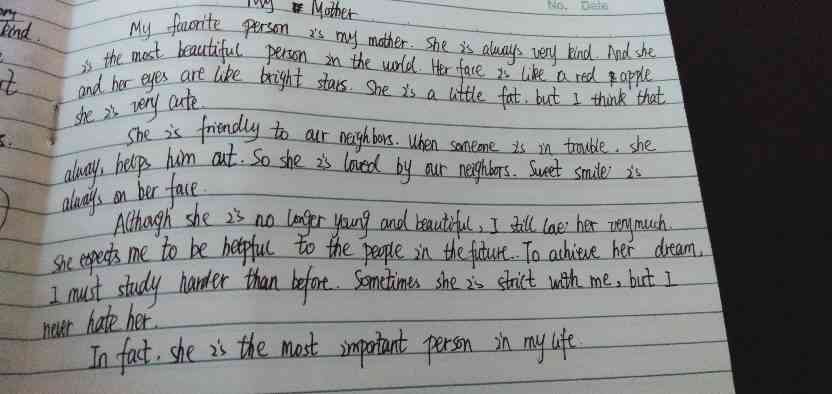 My Mother
No. Date
kind.
My favorite person is my mother. She is always very kind. And she
is the most beautiful person in the world. Her face is like a red apple
and her eyes are like bright stars. She is a little fat. but I think that
she is very cute.
She is friendly to our neighbors. When someone is in trouble. she
alway, helps him out. So she is loved by our neighbors. Sweet smile is
always on her face.
Although she is no longer young and beautiful, I still love her very much.
She expects me to be helpful to the people in the future. To achieve her dream,
I must study harder than before. Sometimes she is strict with me, but I
never hate her.
In fact, she is the most important person in my life.